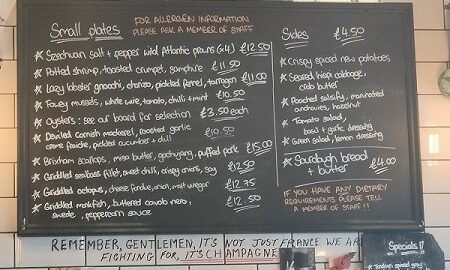 Small plates
FOR ALLERGEN INFORMATION
PLEASE ASK A MEMBER OF STAFF
Szechuan salt + pepper wild Atlantic prawns (x4) £12.50
Potted shrimp, toasted crumpet, samphire £11.50
Lazy lobster gnocchi, chorizo, pickled fennel, tarragon £11.00
Fowey mussels, white wine, tomato, chilli + mint £10.50
Oysters: see our board for selection £3.50 each
Devilled Cornish mackerel, roasted garlic
creme fraiche, pickled cucumber + dill £10.50
Brixham scallops, miso butter, gochujang, puffed pork £15.00
Griddled seabass fillet, sweet chilli, crispy onions, soy £12.50
Griddled octopus, cheese fondue, onion, malt vinegar £12.75
Griddled monkfish, buttered cavolo nero, £12.50
swede, peppercorn sauce
Sides £4.50
Crispy spiced new potatoes
Seared hispi cabbage,
crab butter
Poached salsify, marinated
anchovies, hazelnut
Tomato salad,
basil + garlic dressing
Green salad, lemon dressing
Sourdough bread
+ butter £4.00
IF YOU HAVE ANY DIETARY
REQUIREMENTS PLEASE TELL
A MEMBER OF STAFF!!
REMEMBER, GENTLEMEN, IT'S NOT JUST FRANCE WE ARE
FIGHTING FOR, IT'S CHAMPAGNE
Specials!!